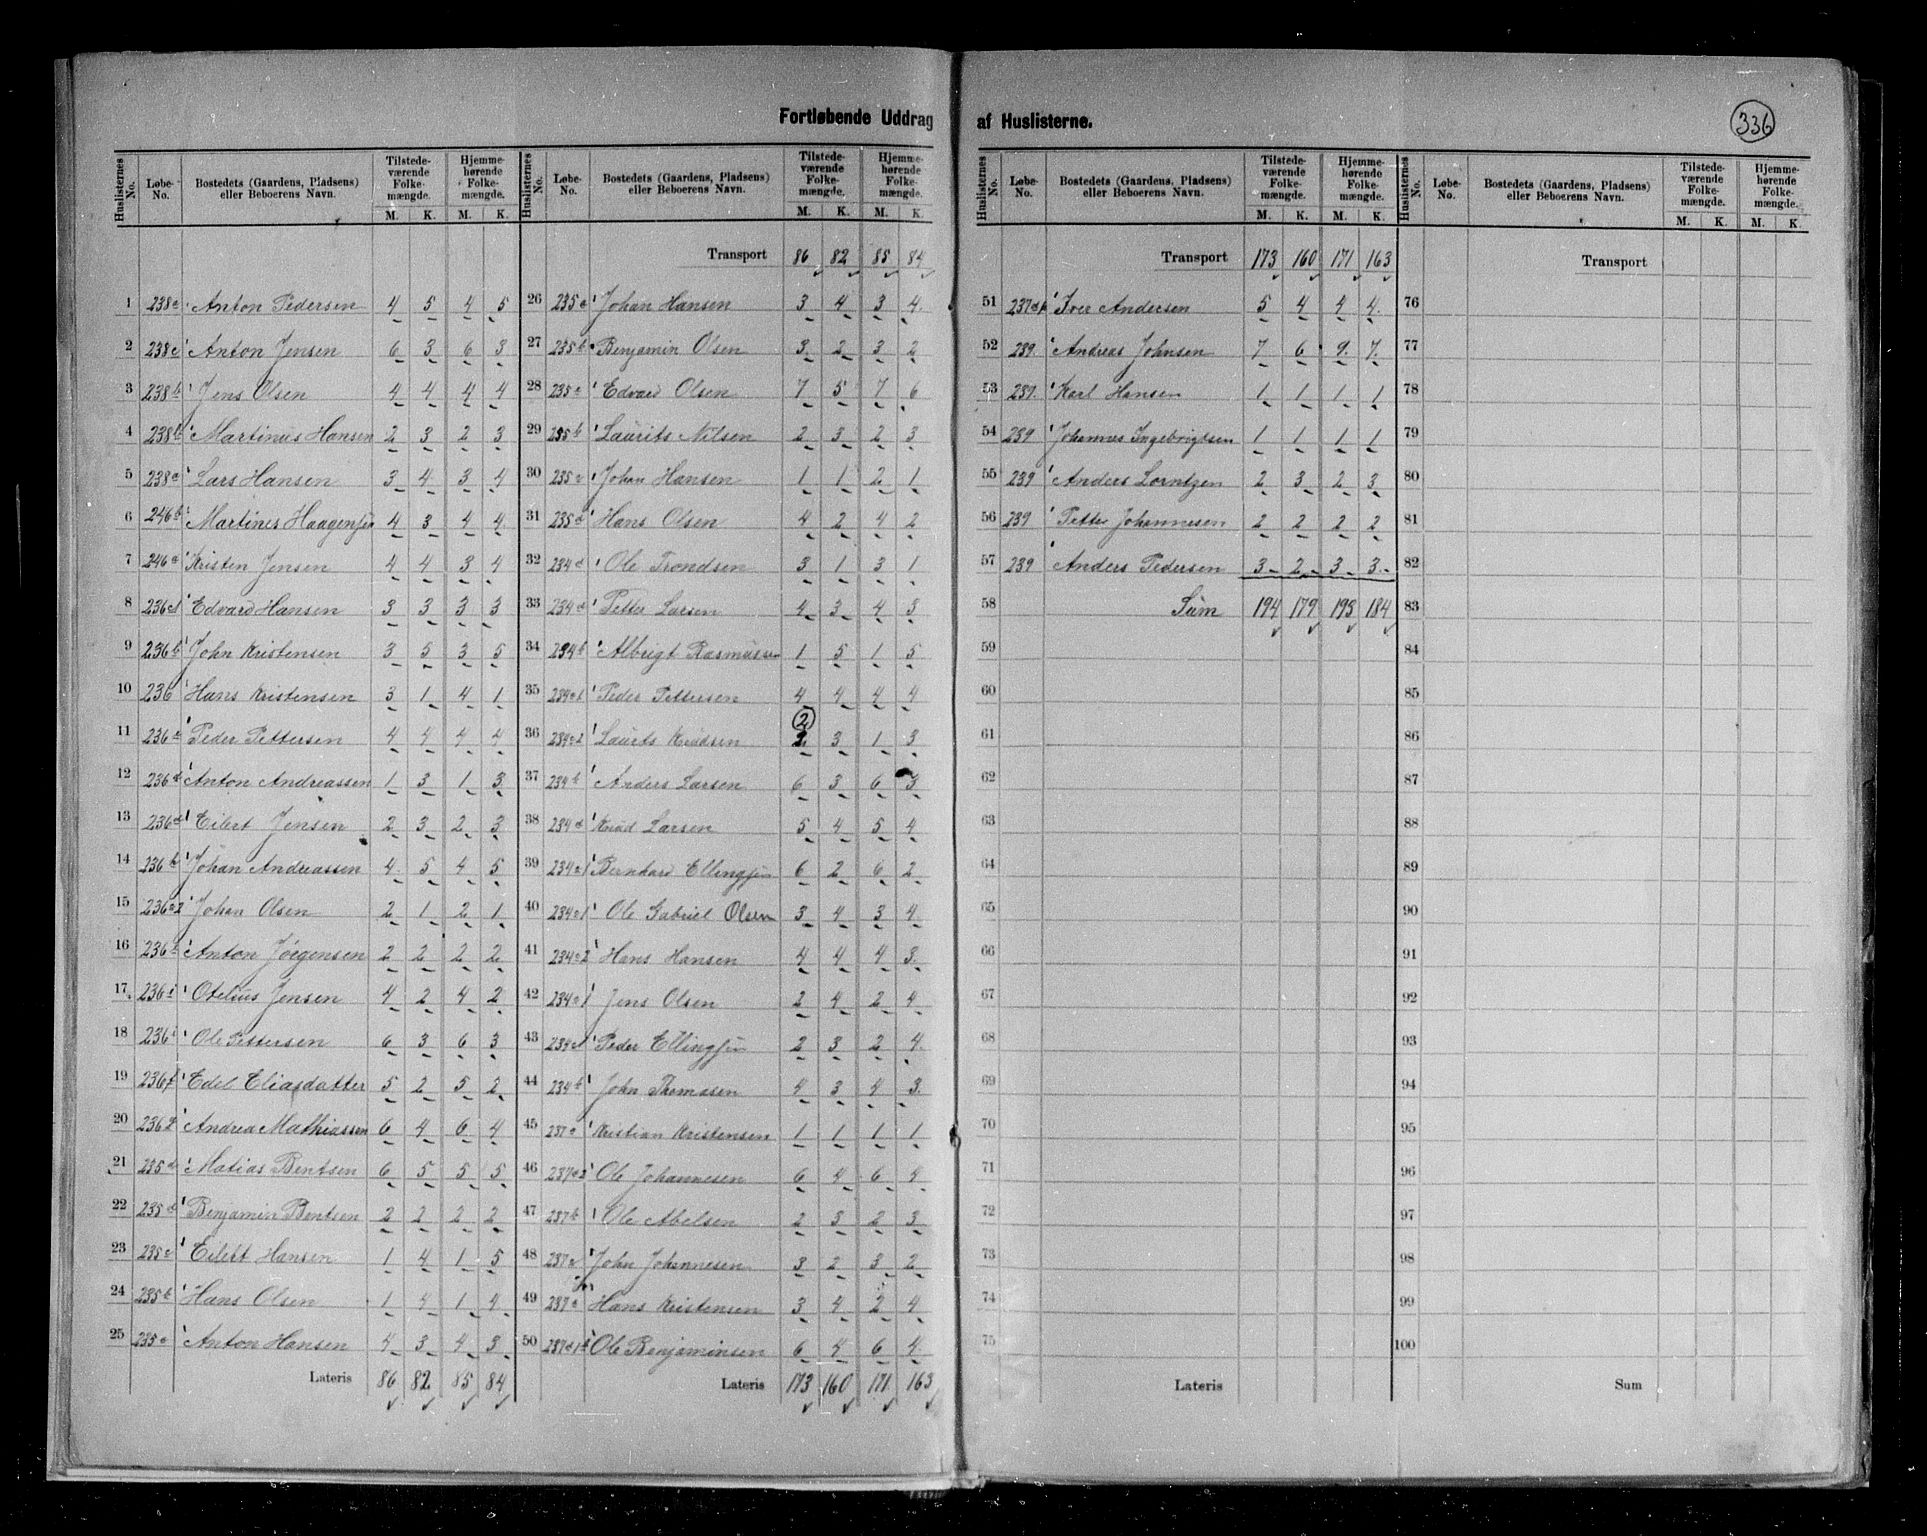 Fortløbende Uddrag af Huslisterne.
336
Huslisternes No. Løbe-No. Bostedets (Gaardens, Pladsens) eller Beboerens Navn. Tilstedeværende Folkemængde. M. K. Hjemmehørende Folkemængde. M. K.
1 238a Anton Pedersen 4 5 4 5
2 238c Anton Jensen 6 3 6 3
3 238b Jens Olsen 4 4 4 4
4 238b Martinus Hansen 2 3 2 3
5 238a Lars Hansen 3 4 3 4
6 246b Martines Haagensen 4 3 4 4
7 246a Kristen Jensen 4 4 3 4
8 236 Edvard Hansen 3 3 3 3
9 236b John Kristensen 3 5 3 5
10 236 Hans Kristensen 3 1 4 1
11 236 Peder Pettersen 4 4 4 4
12 236d Anton Andreassen 1 3 1 3
13 236d Eilert Jensen 2 3 2 3
14 236b Johan Andreassen 4 5 4 5
15 236a2 Johan Olsen 2 1 2 1
16 236b Anton Jørgensen 2 2 2 2
17 236i Otelius Jensen 4 2 4 2
18 236i Ole Pettersen 6 3 6 3
19 236f Edel Eliasdatter 5 2 5 2
20 236 Andrea Mathiassen 6 4 6 4
21 235d Matias Bentsen 6 5 5 5
22 235d Benjamin Bentsen 2 2 2 2
23 235 Eilert Hansen 1 4 1 5
24 235b Hans Olsen 1 4 1 4
25 235a Anton Hansen 4 3 4 3
Lateris 86 82 85 84
Huslisternes No. Løbe-No. Bostedets (Gaardens, Pladsens) eller Beboerens Navn. Tilstedeværende Folkemængde. M. K. Hjemmehørende Folkemængde. M. K.
Transport 86 82 85 84
26 235a Johan Hansen 3 4 3 4
27 235b Benjamin Olsen 3 2 3 2
28 235a Edvard Olsen 7 5 7 6
29 235b Laurits Nilsen 2 3 2 3
30 235 Johan Hansen 1 1 2 1
31 235d Hans Olsen 4 2 4 2
32 234d Ole Trondsen 3 1 3 1
33 234d Petter Larsen 4 3 4 3
34 234b Albrigt Rasmussen 1 5 1 5
35 234a1 Peder Pettersen 4 4 4 4
36 234a2 Laurits Knudsen 2 2 3 1 3
37 234b Anders Larsen 6 3 6 3
38 234d Knud Larsen 5 4 5 4
39 234a1 Bernhard Ellingsen 6 2 6 2
40 234a1 Ole Gabriel Olsen 3 4 3 4
41 234a2 Hans Hansen 4 4 4 3
42 234a1 Jens Olsen 2 4 2 4
43 234a1 Peder Ellingsen 2 3 2 4
44 234b John Thomasen 4 3 4 3
45 237a Kristian Kristensen 1 1 1 1
46 237a2 Ole Johannesen 6 4 6 4
47 237b Ole Abelsen 2 3 2 3
48 237a John Johannesen 3 2 3 2
49 237a Hans Kristensen 3 4 2 4
50 237 Ole Benjaminsen 6 4 6 4
Lateris 173 160 171 163
Huslisternes No. Løbe-No. Bostedets (Gaardens, Pladsens) eller Beboerens Navn. Tilstedeværende Folkemængde. M. K. Hjemmehørende Folkemængde. M. K.
Transport 173 160 171 163
51 237 Iver Andersen 5 4 4 4
52 239 Andreas Johnsen 7 6 9 7
53 239 Karl Hansen 1 1 1 1
54 239 Johannes Ingebrigtsen 1 1 1 1
55 239 Anders Lorntzen 2 3 2 3
56 239 Petter Johannesen 2 2 2 2
57 239 Anders Pedersen 3 2 3 3
58 Sum 194 179 193 184
59
60
61
62
63
64
65
66
67
68
69
70
71
72
73
74
75
Lateris
Huslisternes No. Løbe-No. Bostedets (Gaardens, Pladsens) eller Beboerens Navn. Tilstedeværende Folkemængde. M. K. Hjemmehørende Folkemængde. M. K.
Transport
76
77
78
79
80
81
82
83
84
85
86
87
88
89
90
91
92
93
94
95
96
97
98
99
100
Sum